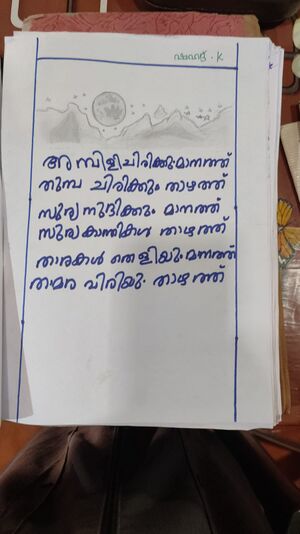 അമ്പിളിചിരിക്കുംമാനത്ത്
തുമ്പ ചിരിക്കും താഴത്ത്
സൂര്യനുദിക്കും മാനത്ത്
സൂര്യകാന്തികൾ താഴത്ത്
താരകൾ തെളിയുംമാനത്ത്
താമര വിരിയും താഴത്ത്